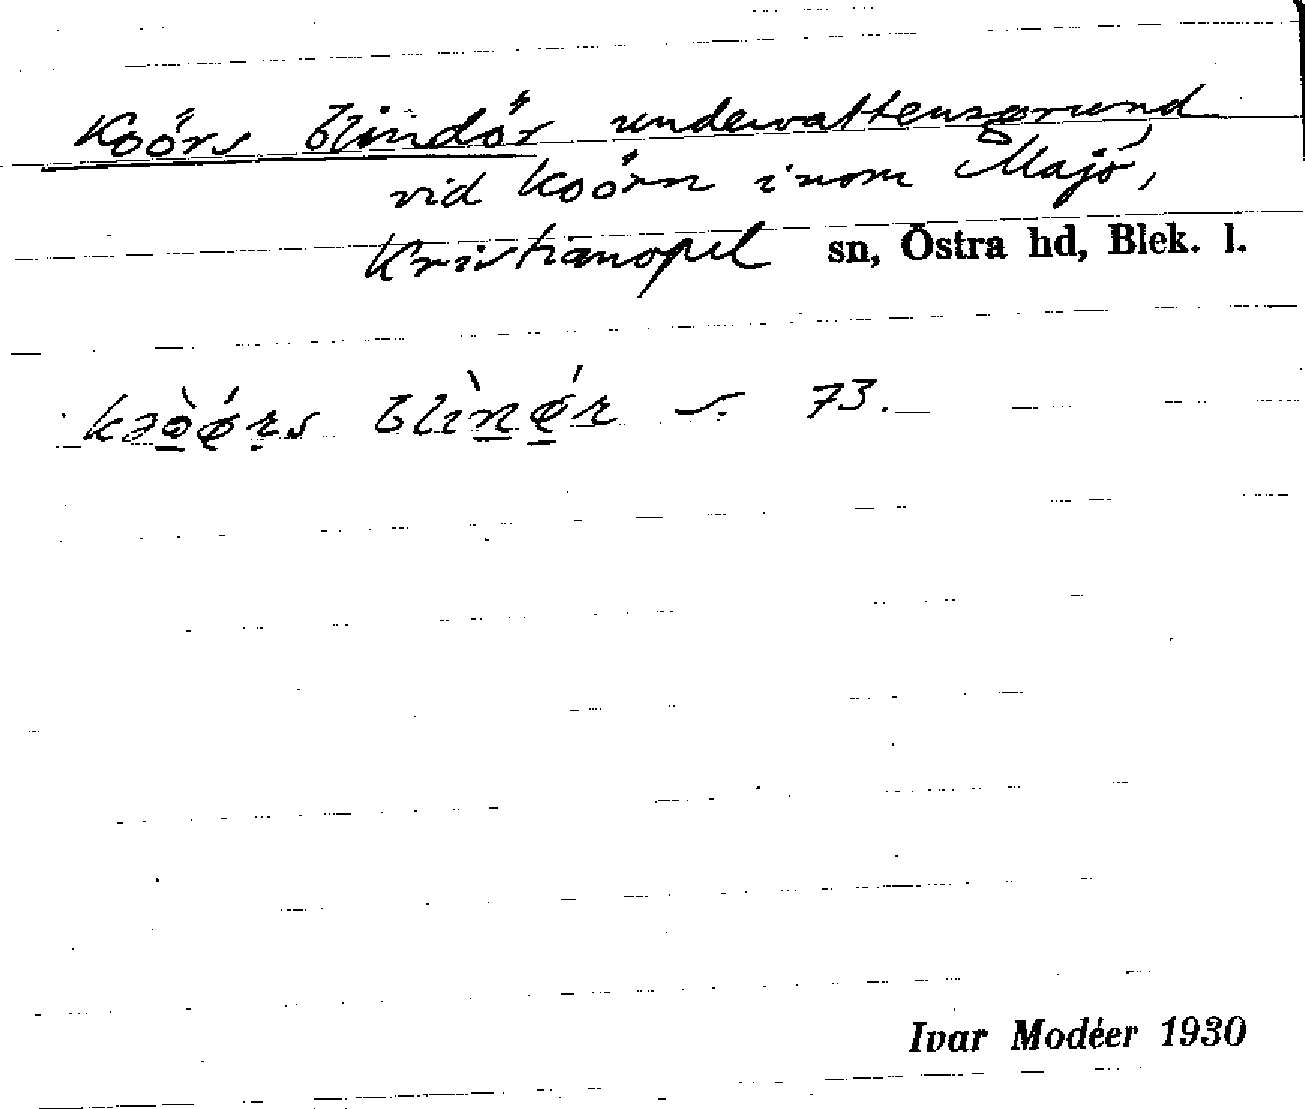 Koörs blindör undervattensgrund
vid Koörn inom Majö,
Kristianopel sn, Östra hd, Blek. l.
73.
Ivar Modéer 1930